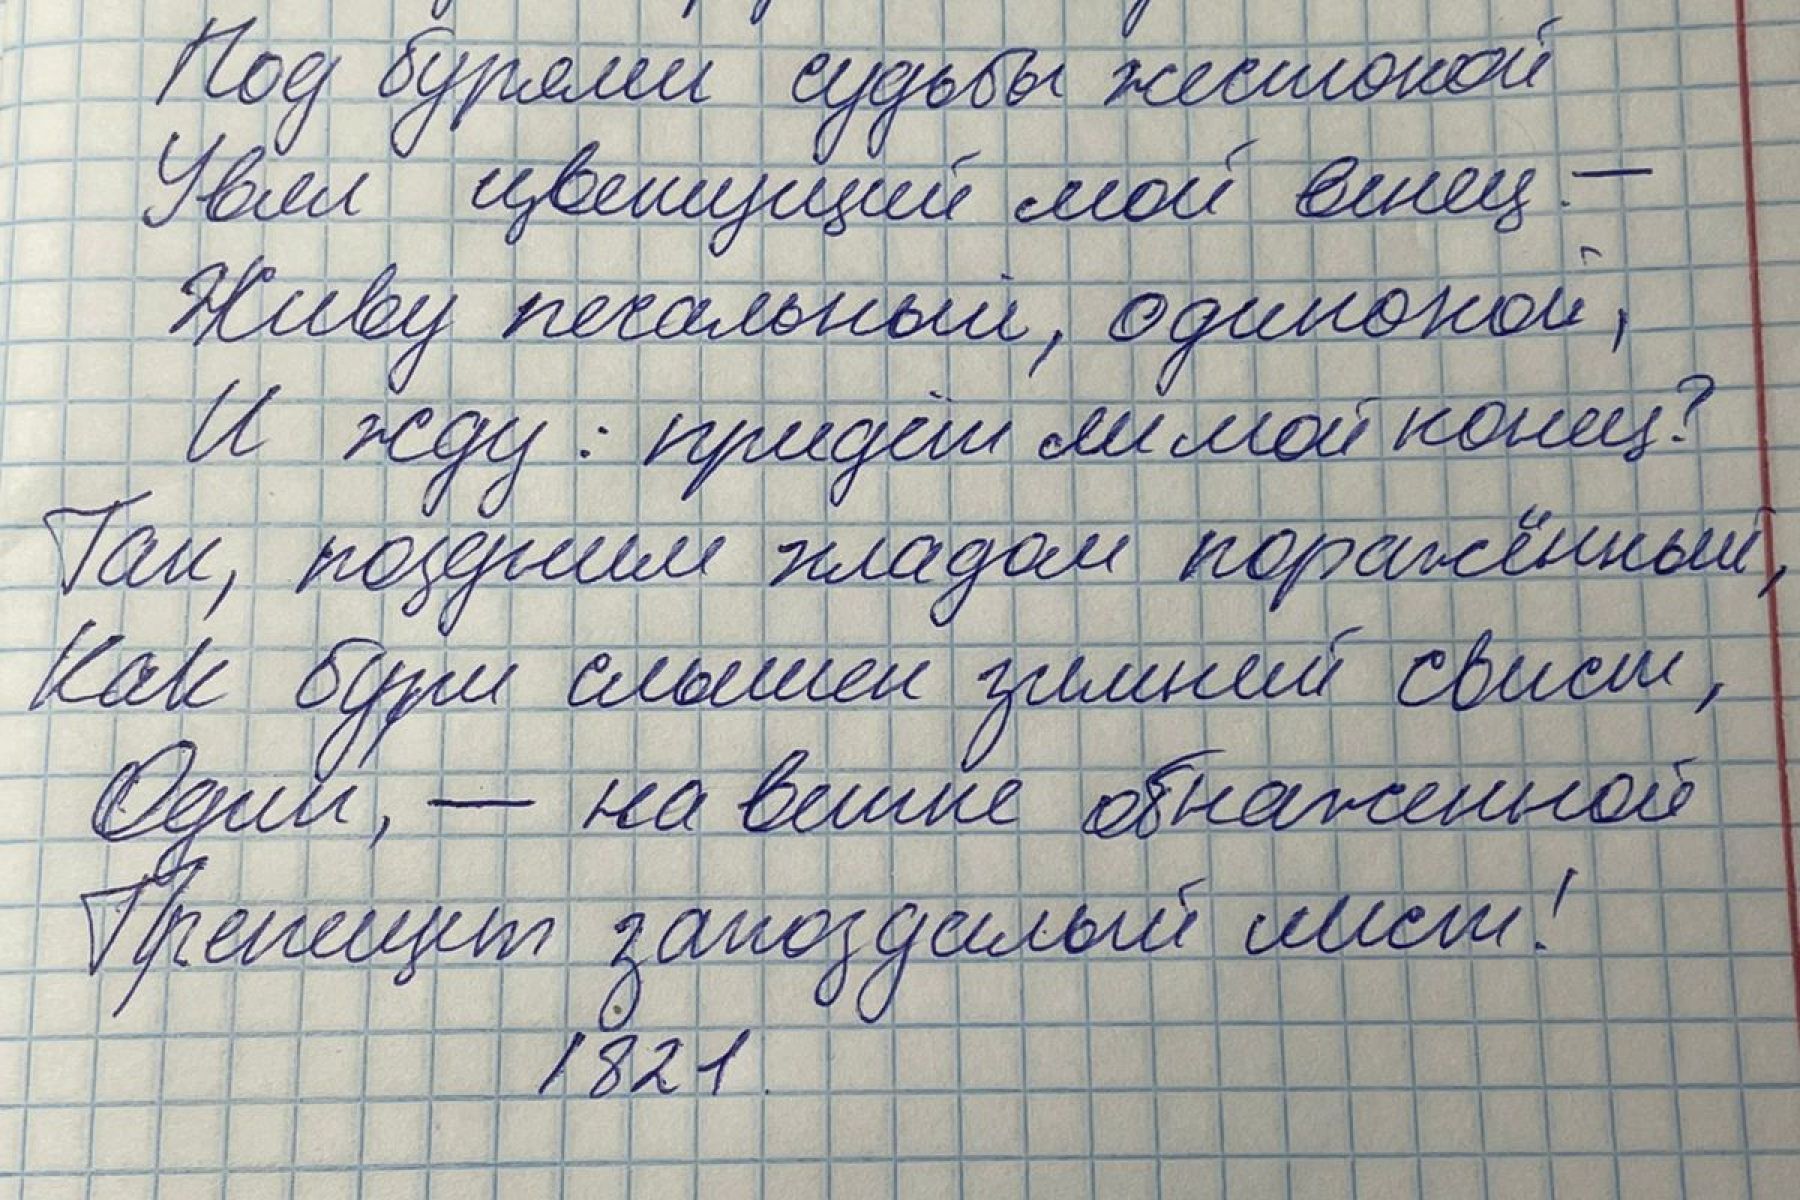 Под бурями судьбы жестокой
Увял цветущий мой венец. —
Живу печальный, одинокой,
И жду: придёт ли мой конец?
Так, поздним хладом поражённый,
Как бури слышен зимний свист,
Один, — на ветке обнаженной
Трепещет запоздалый лист!
1821.